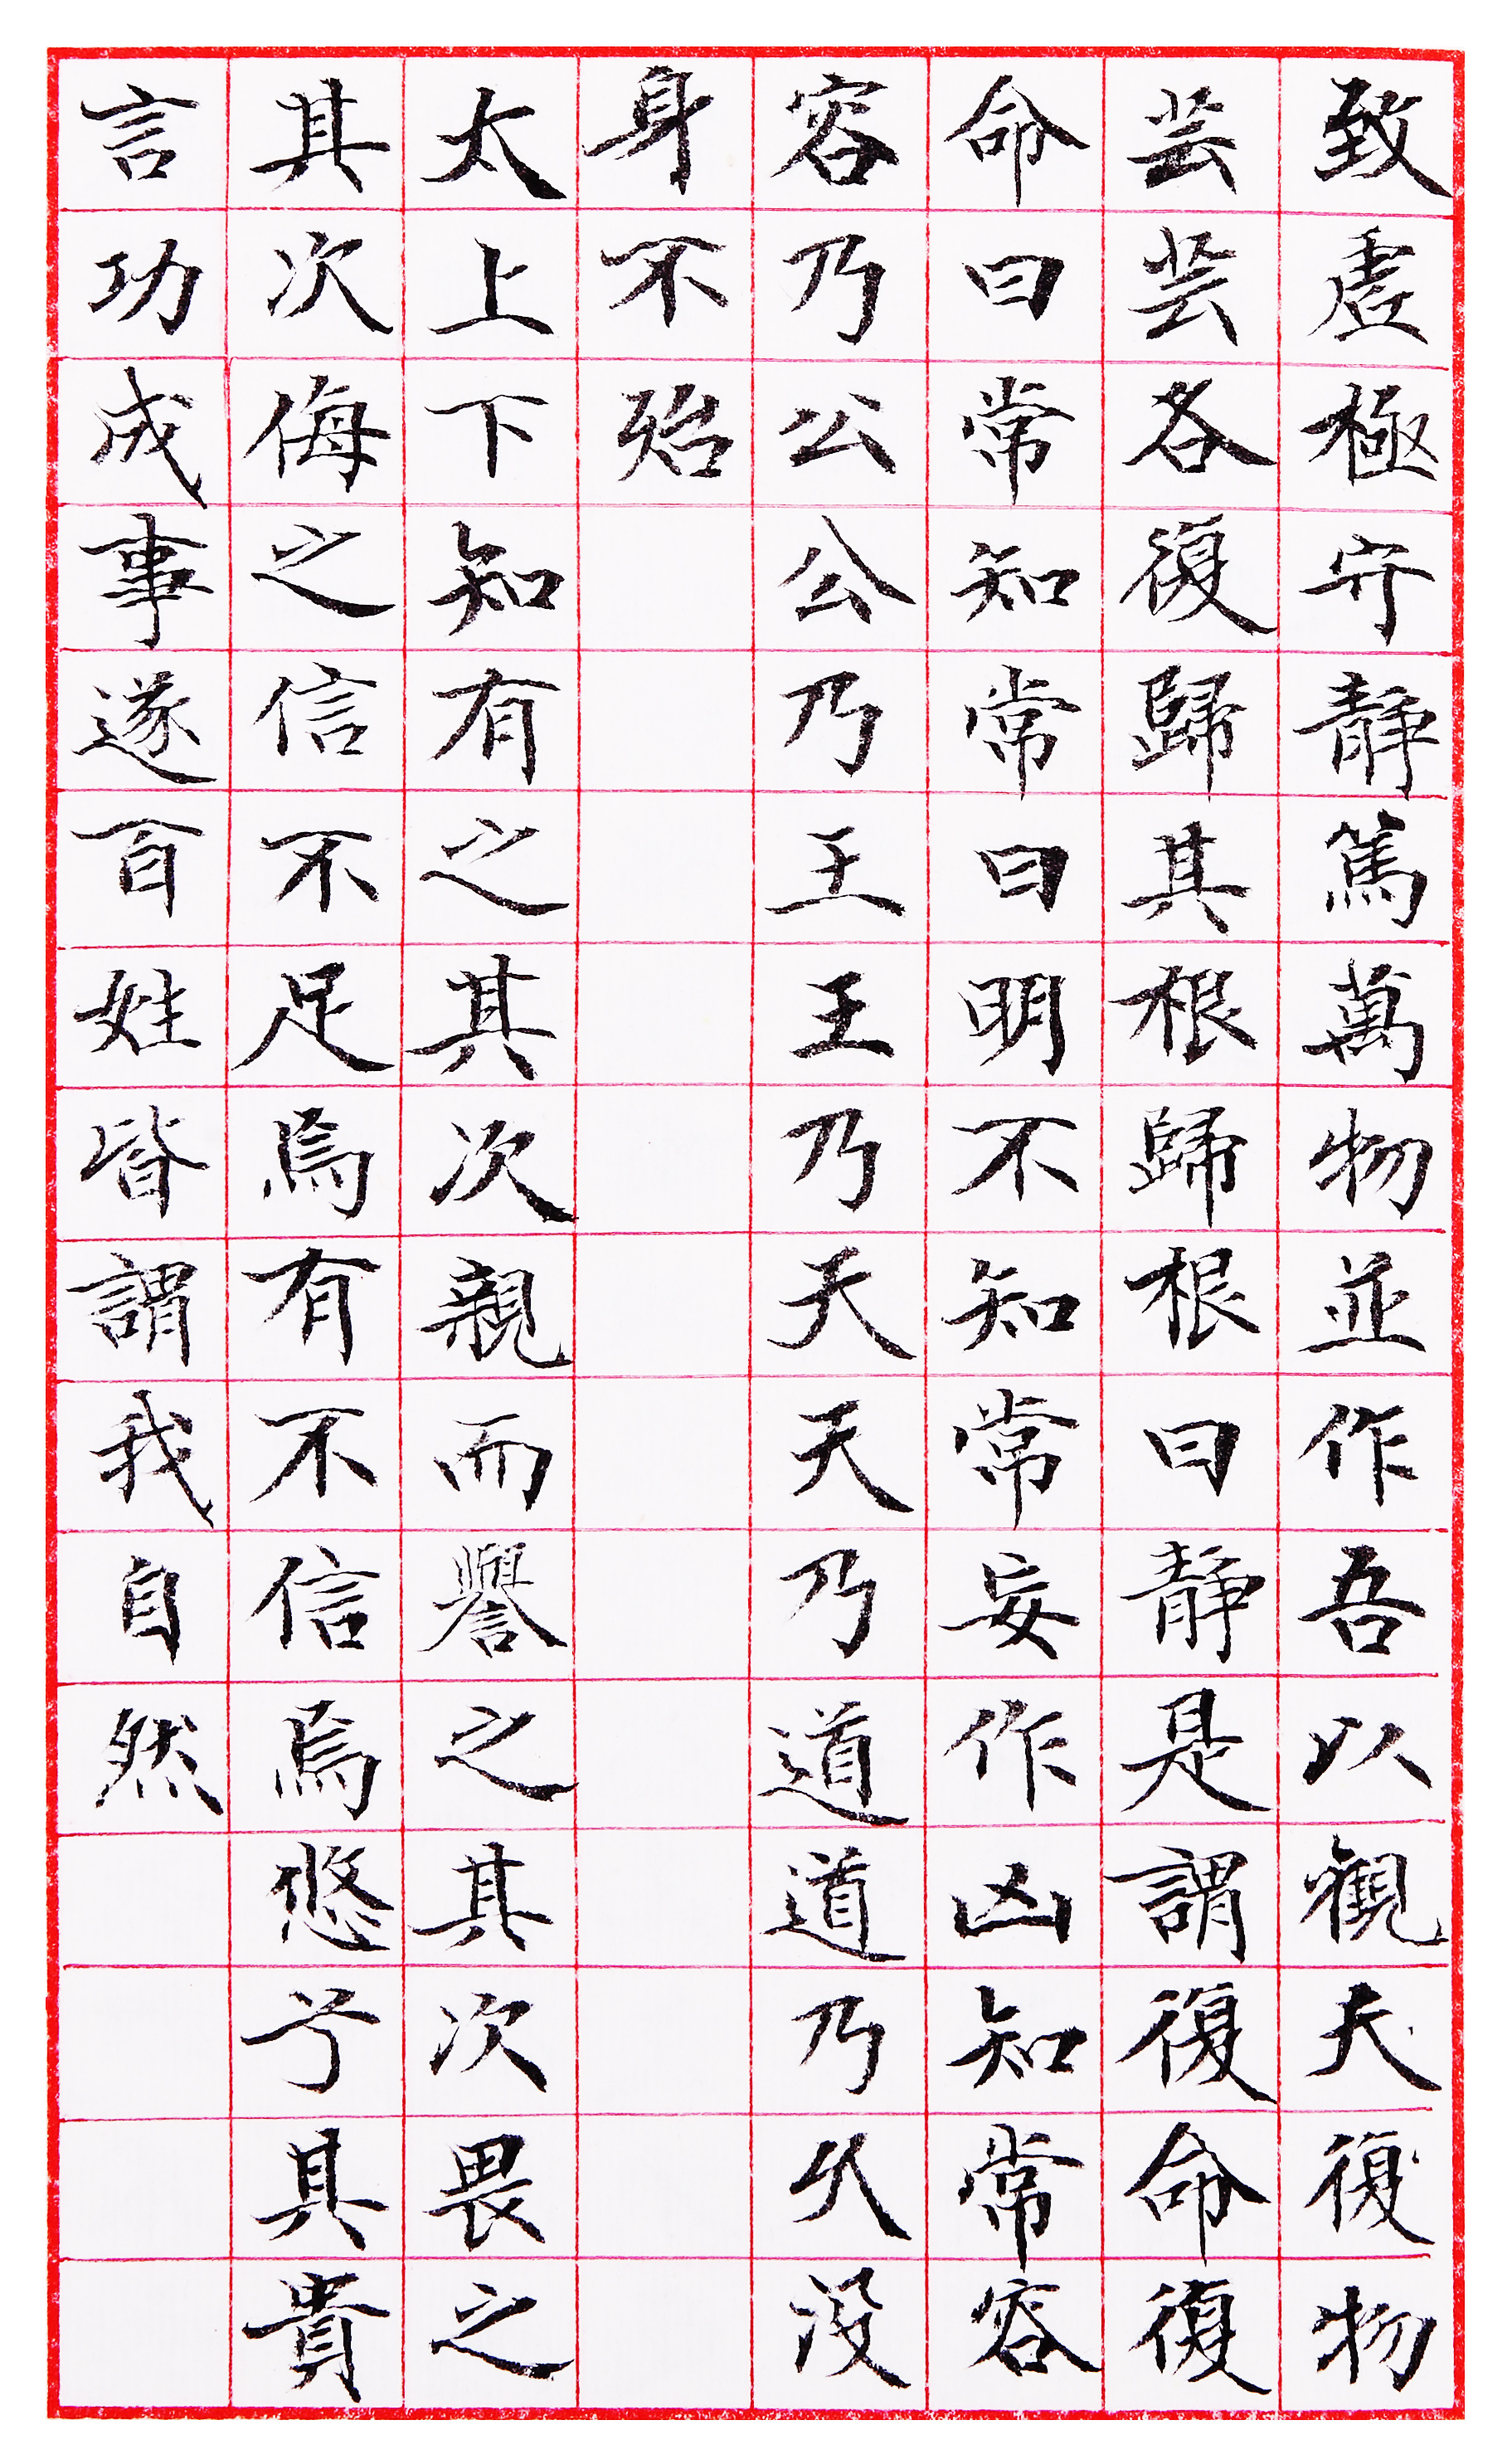 致虛極守靜篤萬物並作吾以觀夫復物
芸芸各復歸其根歸根曰靜是謂復命復
命曰常知常曰明不知常妄作凶知常容
容乃公公乃王王乃天天乃道道乃久没
身不殆
太上下知有之其次親而譽之其次畏之
其次侮之信不足焉有不信焉悠兮其貴
言功成事遂百姓皆謂我自然